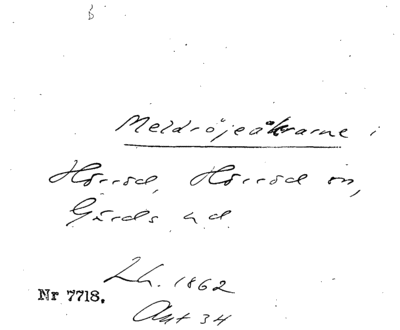 B
Meldröjeåkrarne i
Hörröd, Hörröd sn,
Gärds hd.
Lh. 1862
Nr 7718.
Akt 34